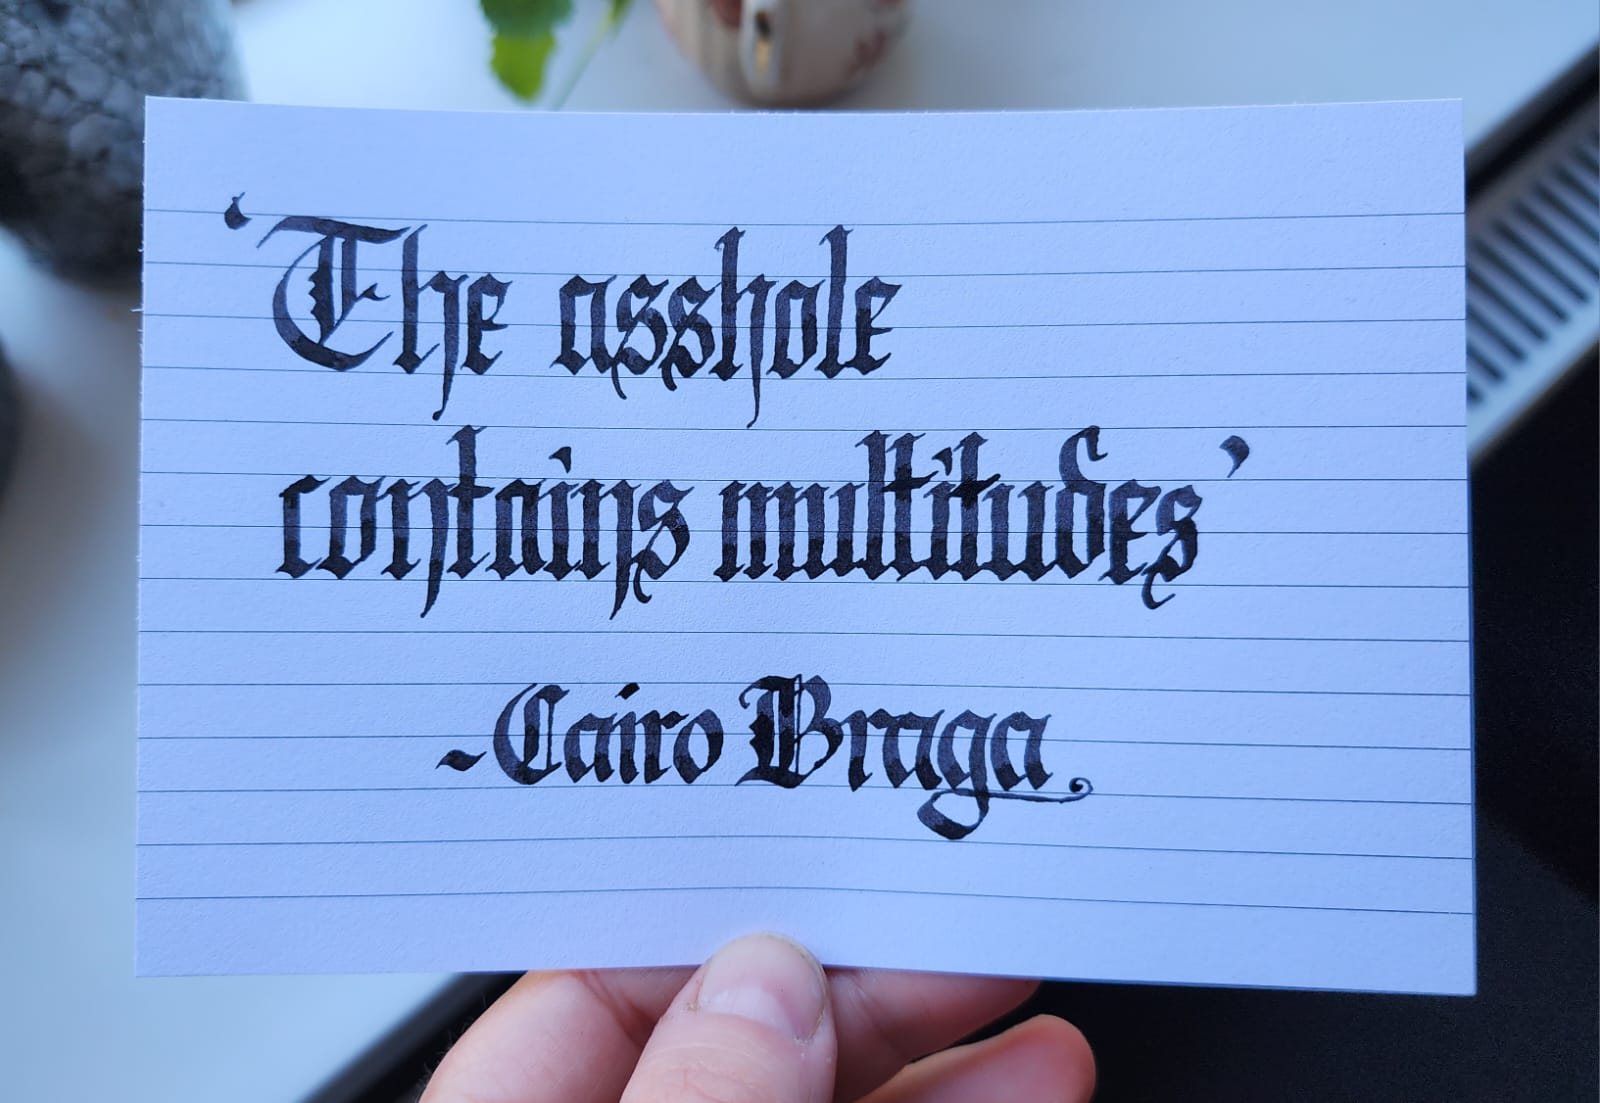 ‘The asshole
contains multitudes’
-Cairo Braga